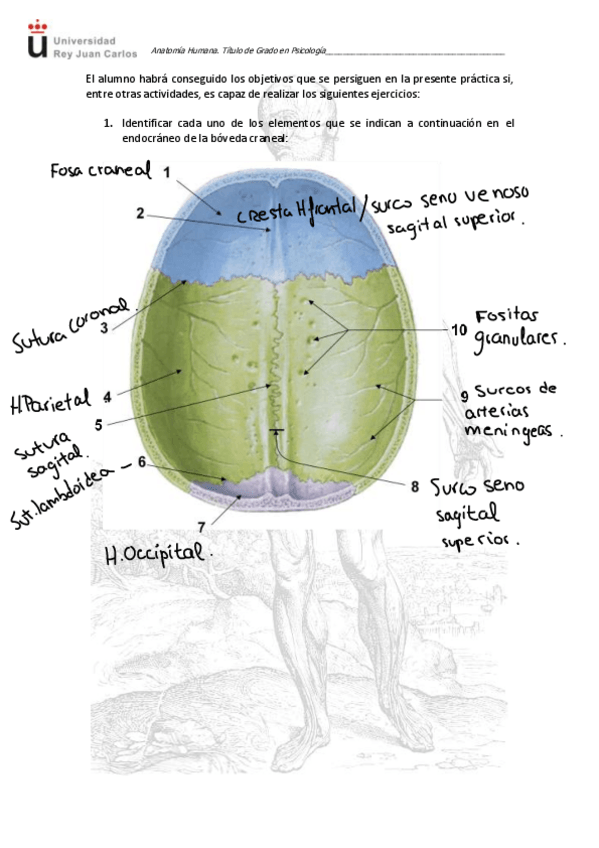 Universidad
Rey Juan Carlos
Anatomía Humana. Título de Grado en Psicología
El alumno habrá conseguido los objetivos que se persiguen en la presente práctica si,
entre otras actividades, es capaz de realizar los siguientes ejercicios:
1. Identificar cada uno de los elementos que se indican a continuación en el
endocráneo de la bóveda craneal:
Fosa craneal 1
2 cresta H frontal / surco seno venoso
sagital superior.
Sutura coronal.
3
10 Fositas
granulares.
H Parietal 4
5
sutura
sagital.
9 Surcos de
arterias
meníngeas.
Sut. lambdoidea - 6
8 Surco seno
sagital
superior.
7
H. Occipital.